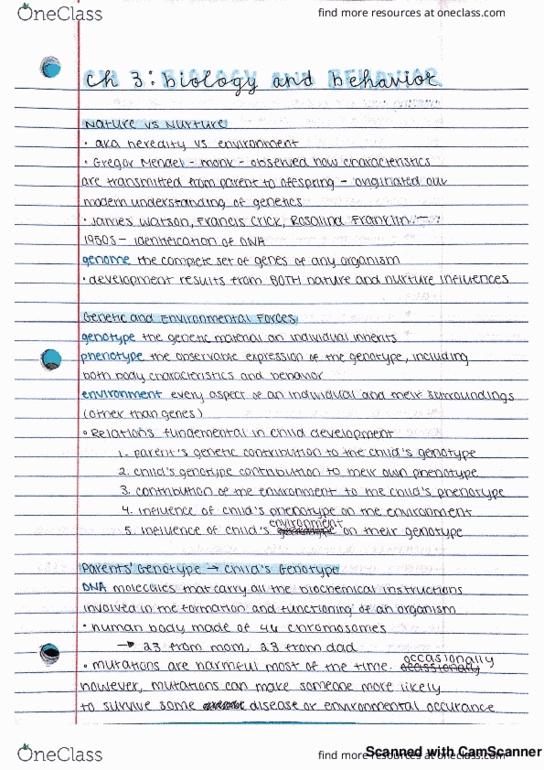 OneClass
find more resources at oneclass.com
Ch 3: biology and behavior
Nature vs Nurture
• aka heredity vs environment
• Gregor Mendel - monk - observed how characteristics
are transmitted from parent to offspring - originated our
modern understanding of genetics
• James Watson, Francis Crick, Rosalind Franklin -
1950s - identification of DNA
genome the complete set of genes of any organism
• development results from BOTH nature and nurture influences
Genetic and Environmental Forces
genotype the genetic material an individual inherits
phenotype the observable expression of the genotype, including
both body characteristics and behavior
environment every aspect of an individual and their surroundings
(other than genes)
• Relations fundemental in child development
1. parent's genetic contribution to the child's genotype
2. child's genotype contribution to their own phenotype
3. contribution of the environment to the child's phenotype
4. influence of child's phenotype on the environment
5. influence of child's environment on their genotype
Parents' Genotype → Child's Genotype
DNA molecules that carry all the biochemical instructions
involved in the formation and functioning of an organism
• human body made of 46 chromosomes
→ 23 from mom, 23 from dad
• mutations are harmful most of the time. occasionally
however, mutations can make someone more likely
to survive some disease or environmental occurance
OneClass
find more resources at oneclass.com
Scanned with CamScanner